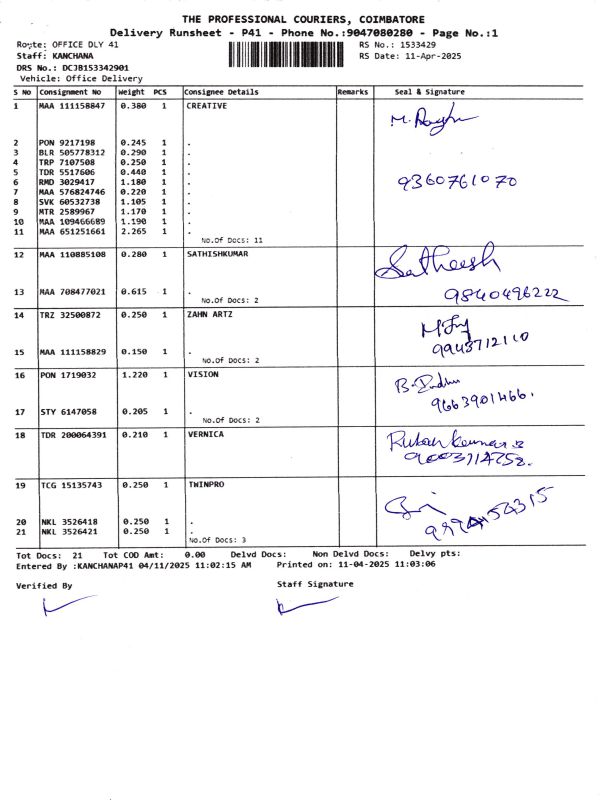 THE PROFESSIONAL COURIERS, COIMBATORE
Delivery Runsheet - P41 - Phone No.:9047080280 - Page No.:1
Route: OFFICE DLY 41 RS No.: 1533429
Staff: KANCHANA RS Date: 11-Apr-2025
DRS No.: DCJB153342901
Vehicle: Office Delivery
S No Consignment No Weight PCS Consignee Details Remarks Seal & Signature
1 MAA 111158847 0.380 1 CREATIVE
M.
2 PON 9217198 0.245 1 .
3 BLR 505778312 0.290 1 .
4 TRP 7107508 0.250 1 .
5 TDR 5517606 0.440 1 .
6 RMD 3029417 1.180 1 . 9360761070
7 MAA 576824746 0.220 1 .
8 SVK 60532738 1.105 1 .
9 MTR 2589967 1.170 1 .
10 MAA 109466689 1.190 1 .
11 MAA 651251661 2.265 1 .
No.Of Docs: 11
12 MAA 110885108 0.280 1 SATHISHKUMAR Satheesh
13 MAA 708477021 0.615 1 . 9840496222
No.Of Docs: 2
14 TRZ 32500872 0.250 1 ZAHN ARTZ
9943712110
15 MAA 111158829 0.150 1 .
No.Of Docs: 2
16 PON 1719032 1.220 1 VISION
9663901466.
17 STY 6147058 0.205 1 .
No.Of Docs: 2
18 TDR 200064391 0.210 1 VERNICA
19 TCG 15135743 0.250 1 TWINPRO
20 NKL 3526418 0.250 1 .
21 NKL 3526421 0.250 1 .
No.Of Docs: 3
Tot Docs: 21 Tot COD Amt: 0.00 Delvd Docs: Non Delvd Docs: Delvy pts:
Entered By :KANCHANAP41 04/11/2025 11:02:15 AM Printed on: 11-04-2025 11:03:06
Verified By Staff Signature